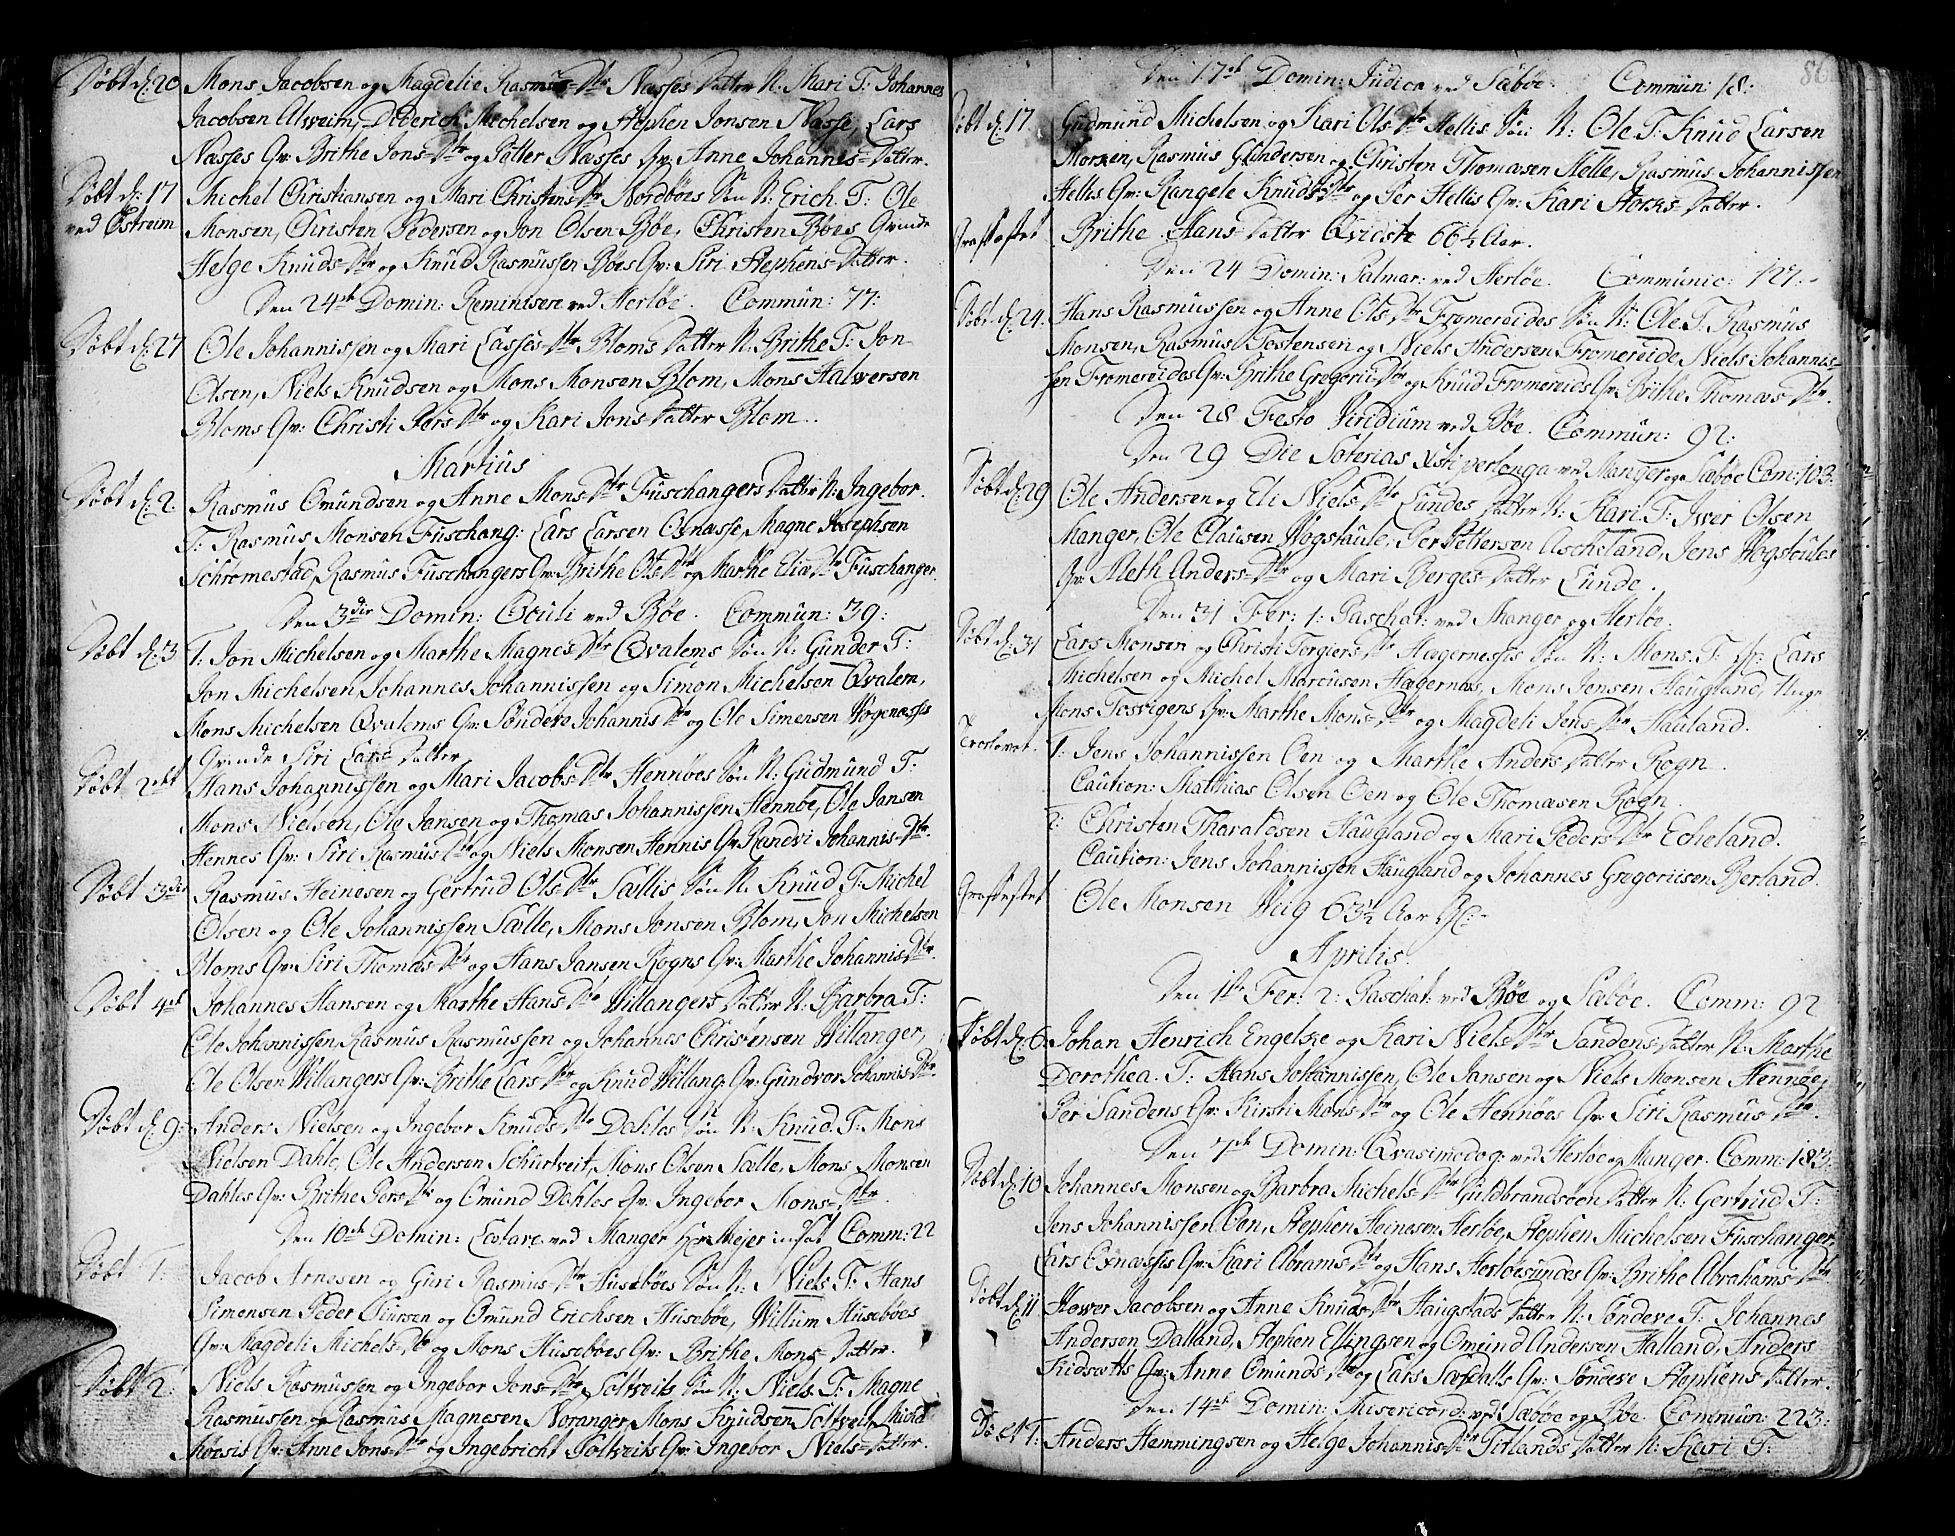 Døbt d: 20 Mons Jacobsen og Magdelie Rasmus-Dtr Næsses Datter N. Mari T: Johannes
Jacobsen Alveim, Diderich Michelsen og Stephen Jonsen Næsse, Lars
Næsses Qv: Brithe Jons-Dtr og Petter Næsses Qv: Anne Johannes-Datter.
Døbt d: 17 Michel Christiansen og Mari Christens-Dtr Nordbøes Søn N. Erich. T: Ole
ved Østreim Monsen, Christen Pedersen og Jon Olsen Bøe, Christen Bøes Qvinde
Helge Knuds-Dtr og Knud Rasmussen Bøes Qv: Siri Stephens-Datter.
Den 24de Domin: Reminisere ved Herløe. Commun: 77:
Døbt d: 27 Ole Johannissen og Mari Lasses-Dtr Bloms Datter N. Brithe T: Jon
Olsen, Niels Knudsen og Mons Monsen Blom, Mons Halversen
Bloms Qv: Christi Pers-Dtr og Kari Jons-Datter Blom.
Martius
Døbt d: 2. Rasmus Omundsen og Anne Mons-Dtr Fuschangers Datter N: Ingebor.
T: Rasmus Monsen Fuschang: Lars Larsen Osnæsse, Magne Josephsen
Schromestad, Rasmus Fuschangers Qv: Brithe Ols-Dtr og Marthe Eliæ-Dtr Fuschanger.
Den 3die Domin: Oculi ved Bøe. Commun: 39:
Døbt d: 3 T: Jon Michelsen og Marthe Magnes-Dtr Qvalems Søn N: Gunder T:
Jon Michelsen, Johannes Johannissen og Simon Michelsen Qvalem,
Mons Michelsen Qvalems Qv: Søndeve Johannis-Dtr og Ole Simensen Høgenæsses
Qvinde Siri Lars-Datter
Døbt 2det Hans Johannissen og Mari Jacobs-Dtr Hennøes Søn N: Gudmund T:
Mons Nielsen, Ole Jansen og Thomas Johannissen Hennøe, Ole Jansen
Hennes Qv: Siri Rasmus-Dtr og Niels Monsen Hennis Qv. Randvi Johannis-Dtr.
Døbt 3die Rasmus Heinesen og Gertrud Ols-Dtr Sællis Søn N. Knud T: Michel
Olsen og Ole Johannissen Sælle, Mons Jonsen Blom, Jon Michelsen
Bloms Qv: Siri Thomæs-Dtr og Hans Jansen Rogns Qv: Marthe Johannis-Dtr.
Døbt 4de Johannes Hansen og Marthe Hans-Dtr Villangers Datter N: Barbra T:
Ole Johannissen Rasmus Rasmussen og Johannes Christensen Villanger,
Ole Olsen Villangers Qv: Brithe Lars-Dtr og Knud Villang: Qv: Gundvor Johannis-Dtr.
Døbt d: 9: Anders Nielsen og Ingebor Knuds-Dtr Dahles Søn N. Knud T: Mons
Nielsen Dahle, Ole Andersen Schurtveit, Mons Olsen Sælle, Mons Monsen
Dahles Qv: Brithe Pers-Dtr og Omund Dahles Qv: Ingebor Mons-Dtr.
Den 10de Domin: Lætare ved Manger Comm: 22
Døbt 1: Jacob Arnesen og Guri Rasmus-Dtr Husebøes Søn N: Niels T: Hans
Simensen Peder Siursen og Omund Erichsen Husebøe, Villum Husebøes
Qv: Magdeli Michels-Dtr og Mons Husebøes Qv: Brithe Mons-Datter.
Døbt 2: Niels Rasmussen og Ingebor Jons-Dtr Soltveits Søn N: Niels T: Magne
Rasmussen, og Rasmus Magnesen Noranger, Mons Knudsen Soltveit, Michel
Qv: Anne Jons-Dtr og Ingebricht Soltveits Qv: Ingebor Niels-Datter.
86
Den 17de Domin: Judica ved Sæbøe. Commun: 18:
Døbt d: 17 Gudmund Michelsen og Kari Ols-Dtr Hellis Søn N: Ole T: Knud Larsen
Rasmus Gundersen og Christen Thomæsen Helle, Rasmus Johannissen
Hellis Qv: Rangele Knuds-Dtr og Per Hellis Qv: Kari Datter.
Grafæstet Brithe Hans-Datter Qviste 66½ Aar.
Den 24 Domin: Palmar: ved Herløe. Communic: 127.
Døbt d: 24. Hans Rasmussen og Anne Ols-Dtr Fromereides Søn N: Ole T. Rasmus
Monsen, Rasmus Tostensen og Niels Andersen Fromereide, Niels Johannis-
sen Fromereides Qv: Brithe Gregorii-Dtr og Knud Fromereids Qv: Brithe Thomæs-Dtr.
Den 28 Festo Viridium ved Bøe. Commun: 92:
Den 29 Die Soterias ved Manger og Sæbøe Com: 103:
Døbt d: 29 Ole Andersen og Eli Niels-Dtr Lundes Datter N: Kari T: Iver Olsen
Manger, Ole Clausen Høgstaule, Per Pettersen Ascheland, Jens Høgstoules
Qv: Aleth Anders-Dtr og Mari Berges-Datter Lunde.
Den 31 Fer: 1: Paschat: ved Manger og Herløe.
Døbt d: 31 Lars Monsen og Christi Torgiers-Dtr Hægernessis Søn N: Mons. T: Lars
Michelsen og Michel Marcusen Hægernæs, Mons Jensen Haugland, Unge
Mons Tosvigens Qv: Marthe Mons-Dtr og Magdeli Jens-Dtr Hauland.
Troelovet. 1: Jens Johannissen Oen og Marthe Anders Datter Rogn.
Caution: Matthias Olsen Oen og Ole Thomæsen Rogn.
2: Christen Tharaldsen Haugland og Mari Peders-Dtr Echeland.
Caution: Jens Johannissen Haugland og Johannes Gregoriisen Berland.
Grafæstet Ole Monsen Viig 63½ Aar
Aprilis.
Den 1ste Fer: 2: Paschat: ved Bøe og Sæbøe. Comm: 92
Døbt d: 6. Johan Henrich Engelske og Kari Niels-Dtr Sandens Datter N: Marthe
Dorothea. T: Hans Johannissen, Ole Jansen og Niels Monsen Hennøe,
Per Sandens Qv: Kirsti Mons-Dtr og Ole Hennøes Qv: Siri Rasmus-Dtr.
Den 7de Domin: Qvasimodog: ved Herløe og Manger. Comm: 183:
Døbt d: 10 Johannes Monsen og Barbra Michels-Dtr Guldbrandsøen Datter N: Gertrud T:
Jens Johannissen Oen, Stephen Heinesen Herløe, Stephen Michelsen Fuschanger,
Lars Osnæssis Qv: Kari Abrams-Dtr og Hans Herløesundes Qv: Brithe Abrahams-Dtr
Døbt d: 11 Hower Jacobsen og Anne Knuds-Dtr Haugstads Datter N: Søndeve T: Johannes
Andersen Dalland, Stephen Ellingsen og Omund Andersen Halland, Anders
Qv: Anne Omunds-Dtr og Lars Qv: Søndeve Stephens-Datter.
Den 14de Domin: Misericord: ved Sæbøe og Bøe. Commun: 223:
1: Anders Hemmingsen og Helge Johannis-Dtr Titlands Datter N: Kari T: